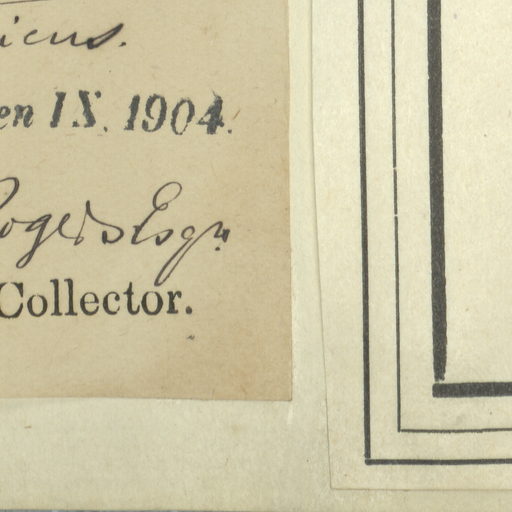 icus.
en IX. 1904.
Rogers Esqr.
Collector.